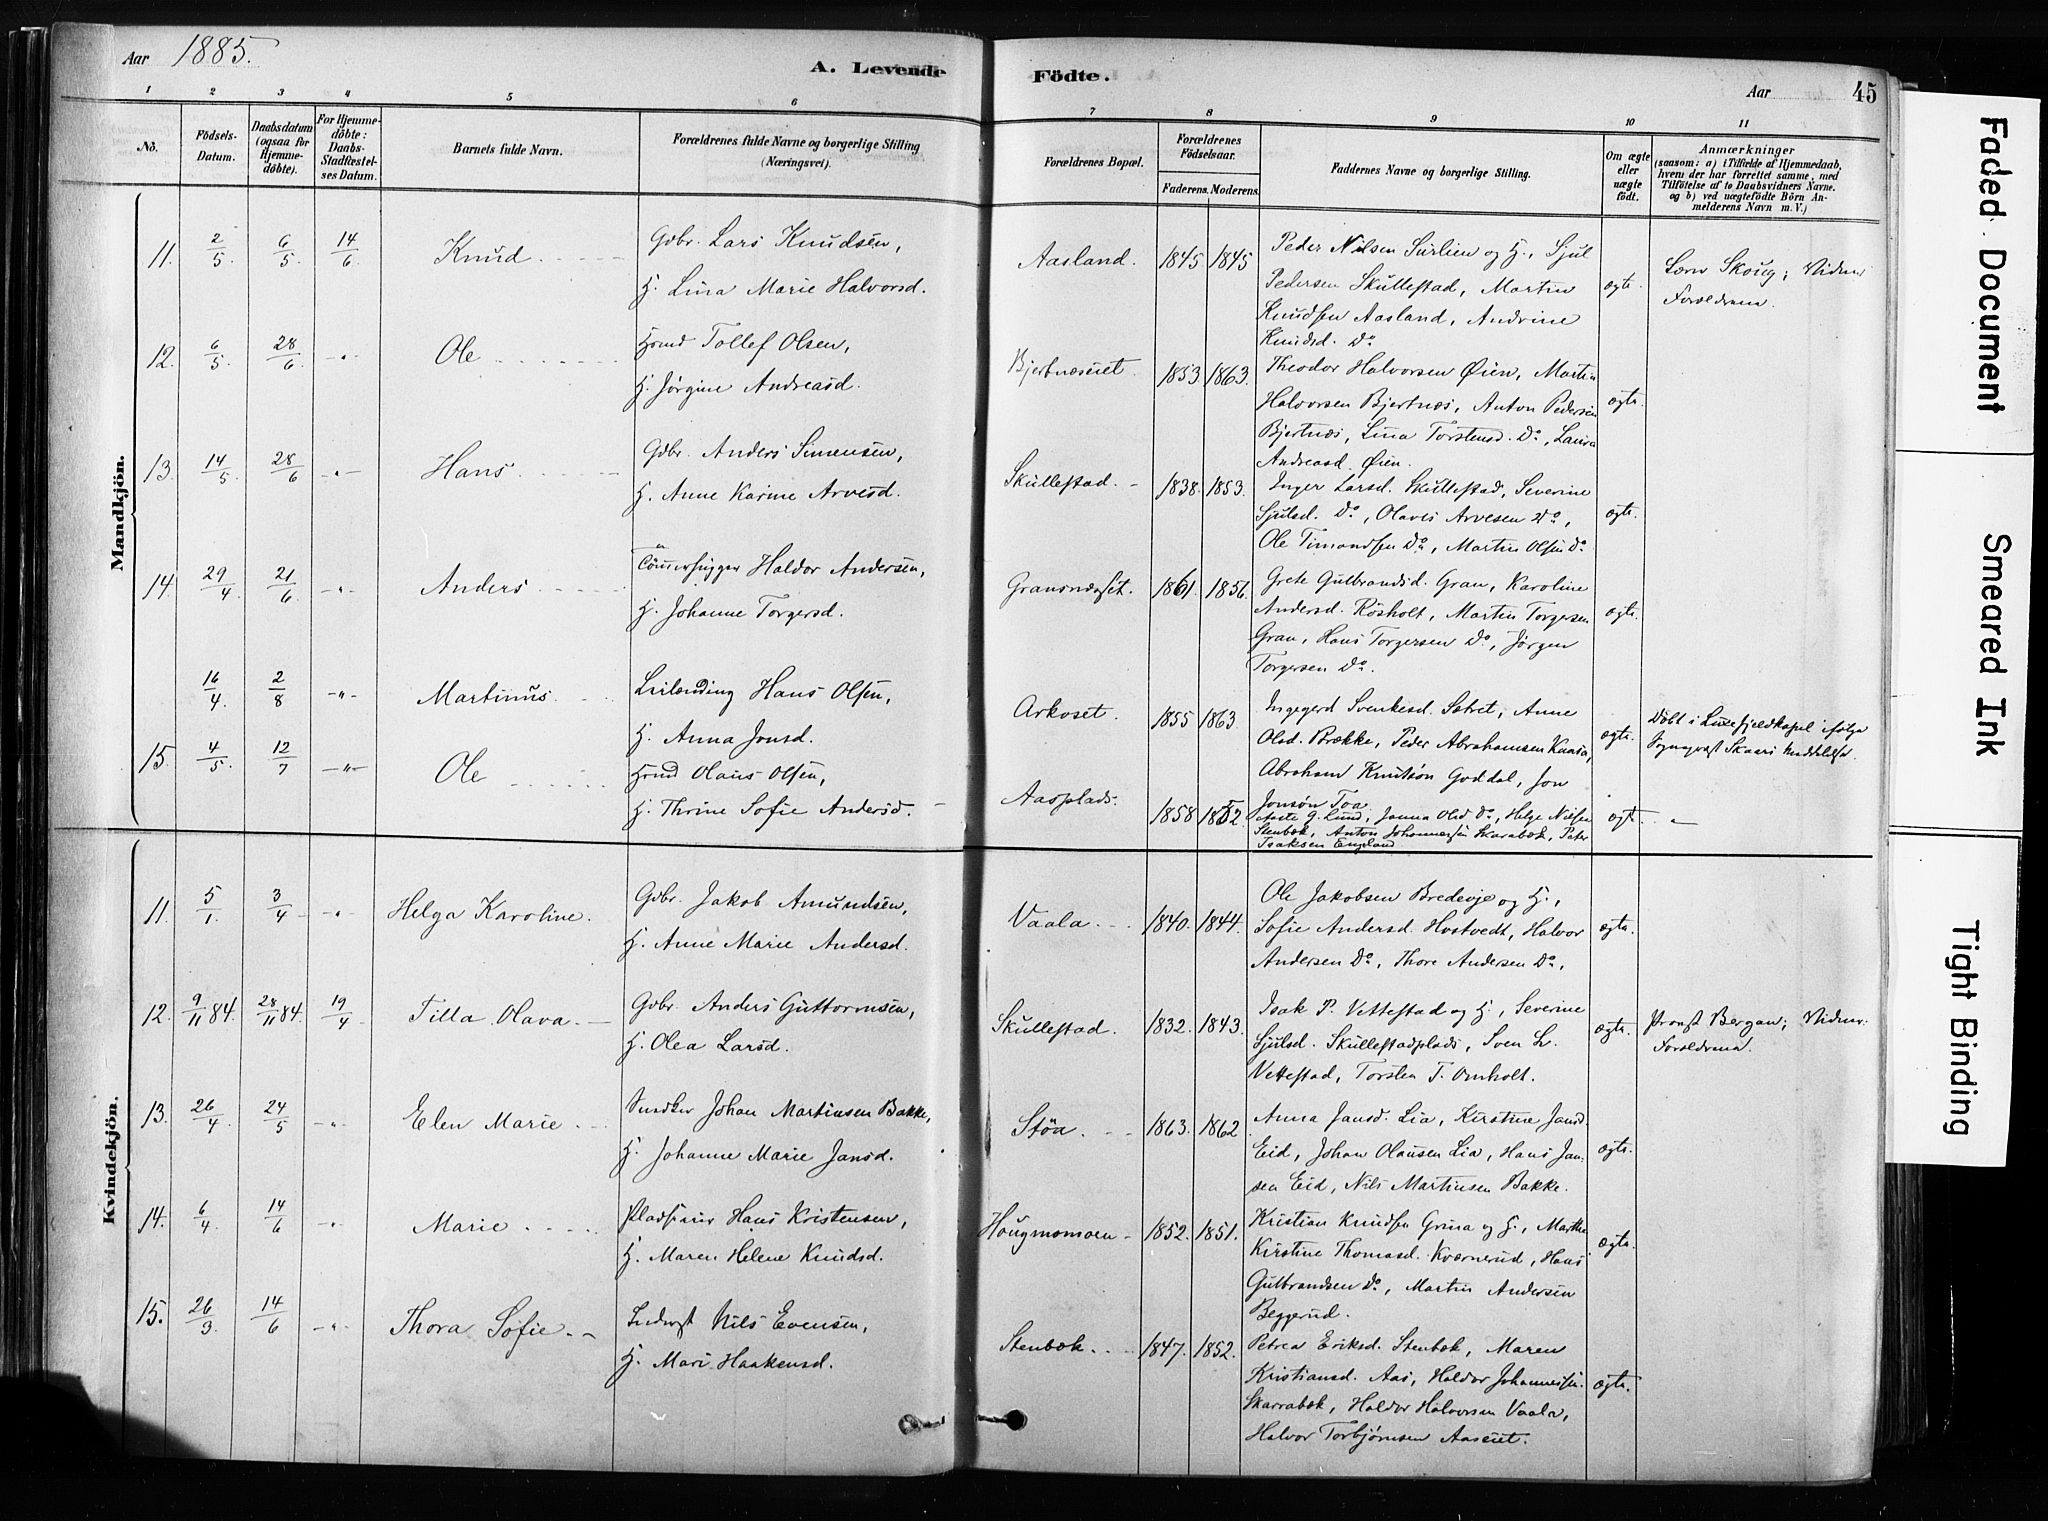 Aar 1885.
A. Levende Födte.
Aar 45
1 2 3 4 5 6 7 8 9 10 11
No. Födsels-Datum. Daabsdatum (ogsaa for Hjemmedöbte). For Hjemmedöbte: Daabs-Stadfæstelses Datum. Barnets fulde Navn. Forældrenes fulde Navne og borgerlige Stilling (Næringsvei). Forældrenes Bopæl. Forældrenes Födselsaar. Faderens. Moderens. Faddernes Navne og borgerlige Stilling. Om ægte eller uægte födt. Anmærkninger (saasom: a) i Tilfælde af Hjemmedaab, hvem der har forrettet samme, med Tilföielse af to Daabsvidners Navne. og b) ved uægtefödte Börn Anmelderens Navn m. V.)
Mandkjön.
11. 2/5 6/5 14/6 Knud Gdbr. Lars Knudsen,
H. Lina Marie Halvorsd.
Aasland. 1845 1845 Peder Nilsen Surlien og H., Sjul
Pedersen Skullestad, Martin
Knudsen Aasland, Andrine
Knudsd. Do
ægte. Lærer Skoug; Vidner
Forældrene.
12. 6/5 28/6 -"- Ole Hmd Tollef Olsen,
H. Jørgine Andreasd.
Bjertnæseiet. 1853 1863. Theodor Halvorsen Øien, Martin
Halvorsen Bjertnæs, Anton Pedersen
Bjertnæs, Lina Torstensd. Do, Laura
Andreasd. Øien.
ægte.
13. 14/5 28/6 -"- Hans Gdbr. Anders Simensen,
H. Anne Karine Arvesd.
Skullestad. - 1838. 1853. Inger Larsd. Skullestad, Severine
Sjulsd. Do, Olavis Arvesen Do,
Ole Timandsen Do, Martin Olsen Do
ægte.
14. 29/4 21/6 -"- Anders Tömmerhugger Haldor Andersen,
H. Johanne Torgersd.
Gransnæsset. 1861. 1856. Grete Gulbrandsd. Gran, Karoline
Andersd. Rösholt, Martin Torgersen
Gran, Hans Torgersen Do, Jørgen
Torgersen Do.
ægte.
16/4 2/8 -"- Martinus Leilænding Hans Olsen,
H. Anna Jonsd.
Arkoset. 1855 1863 Ingegerd Svenkesd. Sætret, Anne
Olsd. Brække, Peder Abrahamsen Kaasa,
Abraham Knutsön Goddal, Jon
Jonsön Toa
ægte. Döbt i Luxefjeldkapel ifølge
Sognepræst Skaars Meddelelse.
15. 4/5 12/7 -"- Ole Hmd Olaus Olsen,
H. Thrine Sofie Andersd. -
Aasplads. 1858 1852. G. Lund, Janna Olsd Do, Helge Nilsen
Stenbæk, Anton Johannesen Skarabæk, Peter
Isaksen England
ægte. -"-
Kvindekjön.
11. 5/1 3/4 -"- Helga Karoline. Gdbr. Jakob Amundsen,
H. Anne Marie Andersd.
Vaala. 1840. 1844. Ole Jakobsen Bredevje og H.,
Sofie Andersd. Hostvedt, Halvor
Andersen Do, Thore Andersen Do,
ægte.
12. 9/11 84. 28/11 84. 19/4 Tilla Olava. Gdbr. Anders Guttormsen,
H. Olea Larsd.
Skullestad. 1832. 1843. Isak P. Vettestad og H., Severine
Sjulsd. Skullestadplads, Sven L.
Vettestad, Torsten T. Omholt.
ægte. Provst Bergan; Vidner:
Forældrene.
13. 26/4 24/5 -"- Elen Marie Snedker Johan Martinsen Bakke,
H. Johanne Marie Jansd.
Støa. 1863. 1862 Anna Jansd. Lia, Kirstine Jansd.
Eid, Johan Olausen Lia, Hans Jansen Eid, Nils Martinsen Bakke.
ægte.
14. 6/4 14/6 -"- Marie Pladseier Hans Kristensen,
H. Maren Helene Knudsd.
Hougmomoen - 1852. 1851. Kristian Knudsen Grina og H., Marthe
Kirstine Thomasd. Kværnerud, Hans
Gulbrandsen Do, Martin Andersen
Beggerud.
ægte.
15. 26/3 14/6 -"- Thora Sofie. Nils Evensen,
H. Mari Haakensd.
Stenbæk. 1847. 1852. Petrea Eriksd. Stenbæk, Maren
Kristiansd. Aas, Haldor Johannesen
Skarrabæk, Haldor Halvorsen Vaala,
Halvor Torbjørnsen Aaseiet.
ægte.
Faded Document
Smeared Ink
Tight Binding